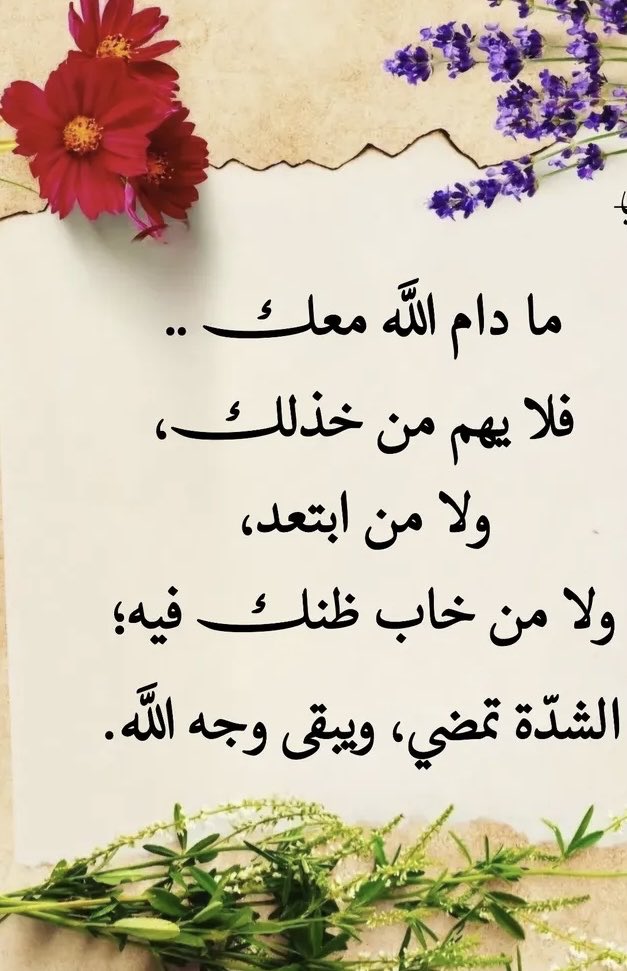 ما دام اللَّه معك ..
فلا يهم من خذلك،
ولا من ابتعد،
ولا من خاب ظنك فيه؛
الشدّة تمضي، ويبقى وجه اللَّه.